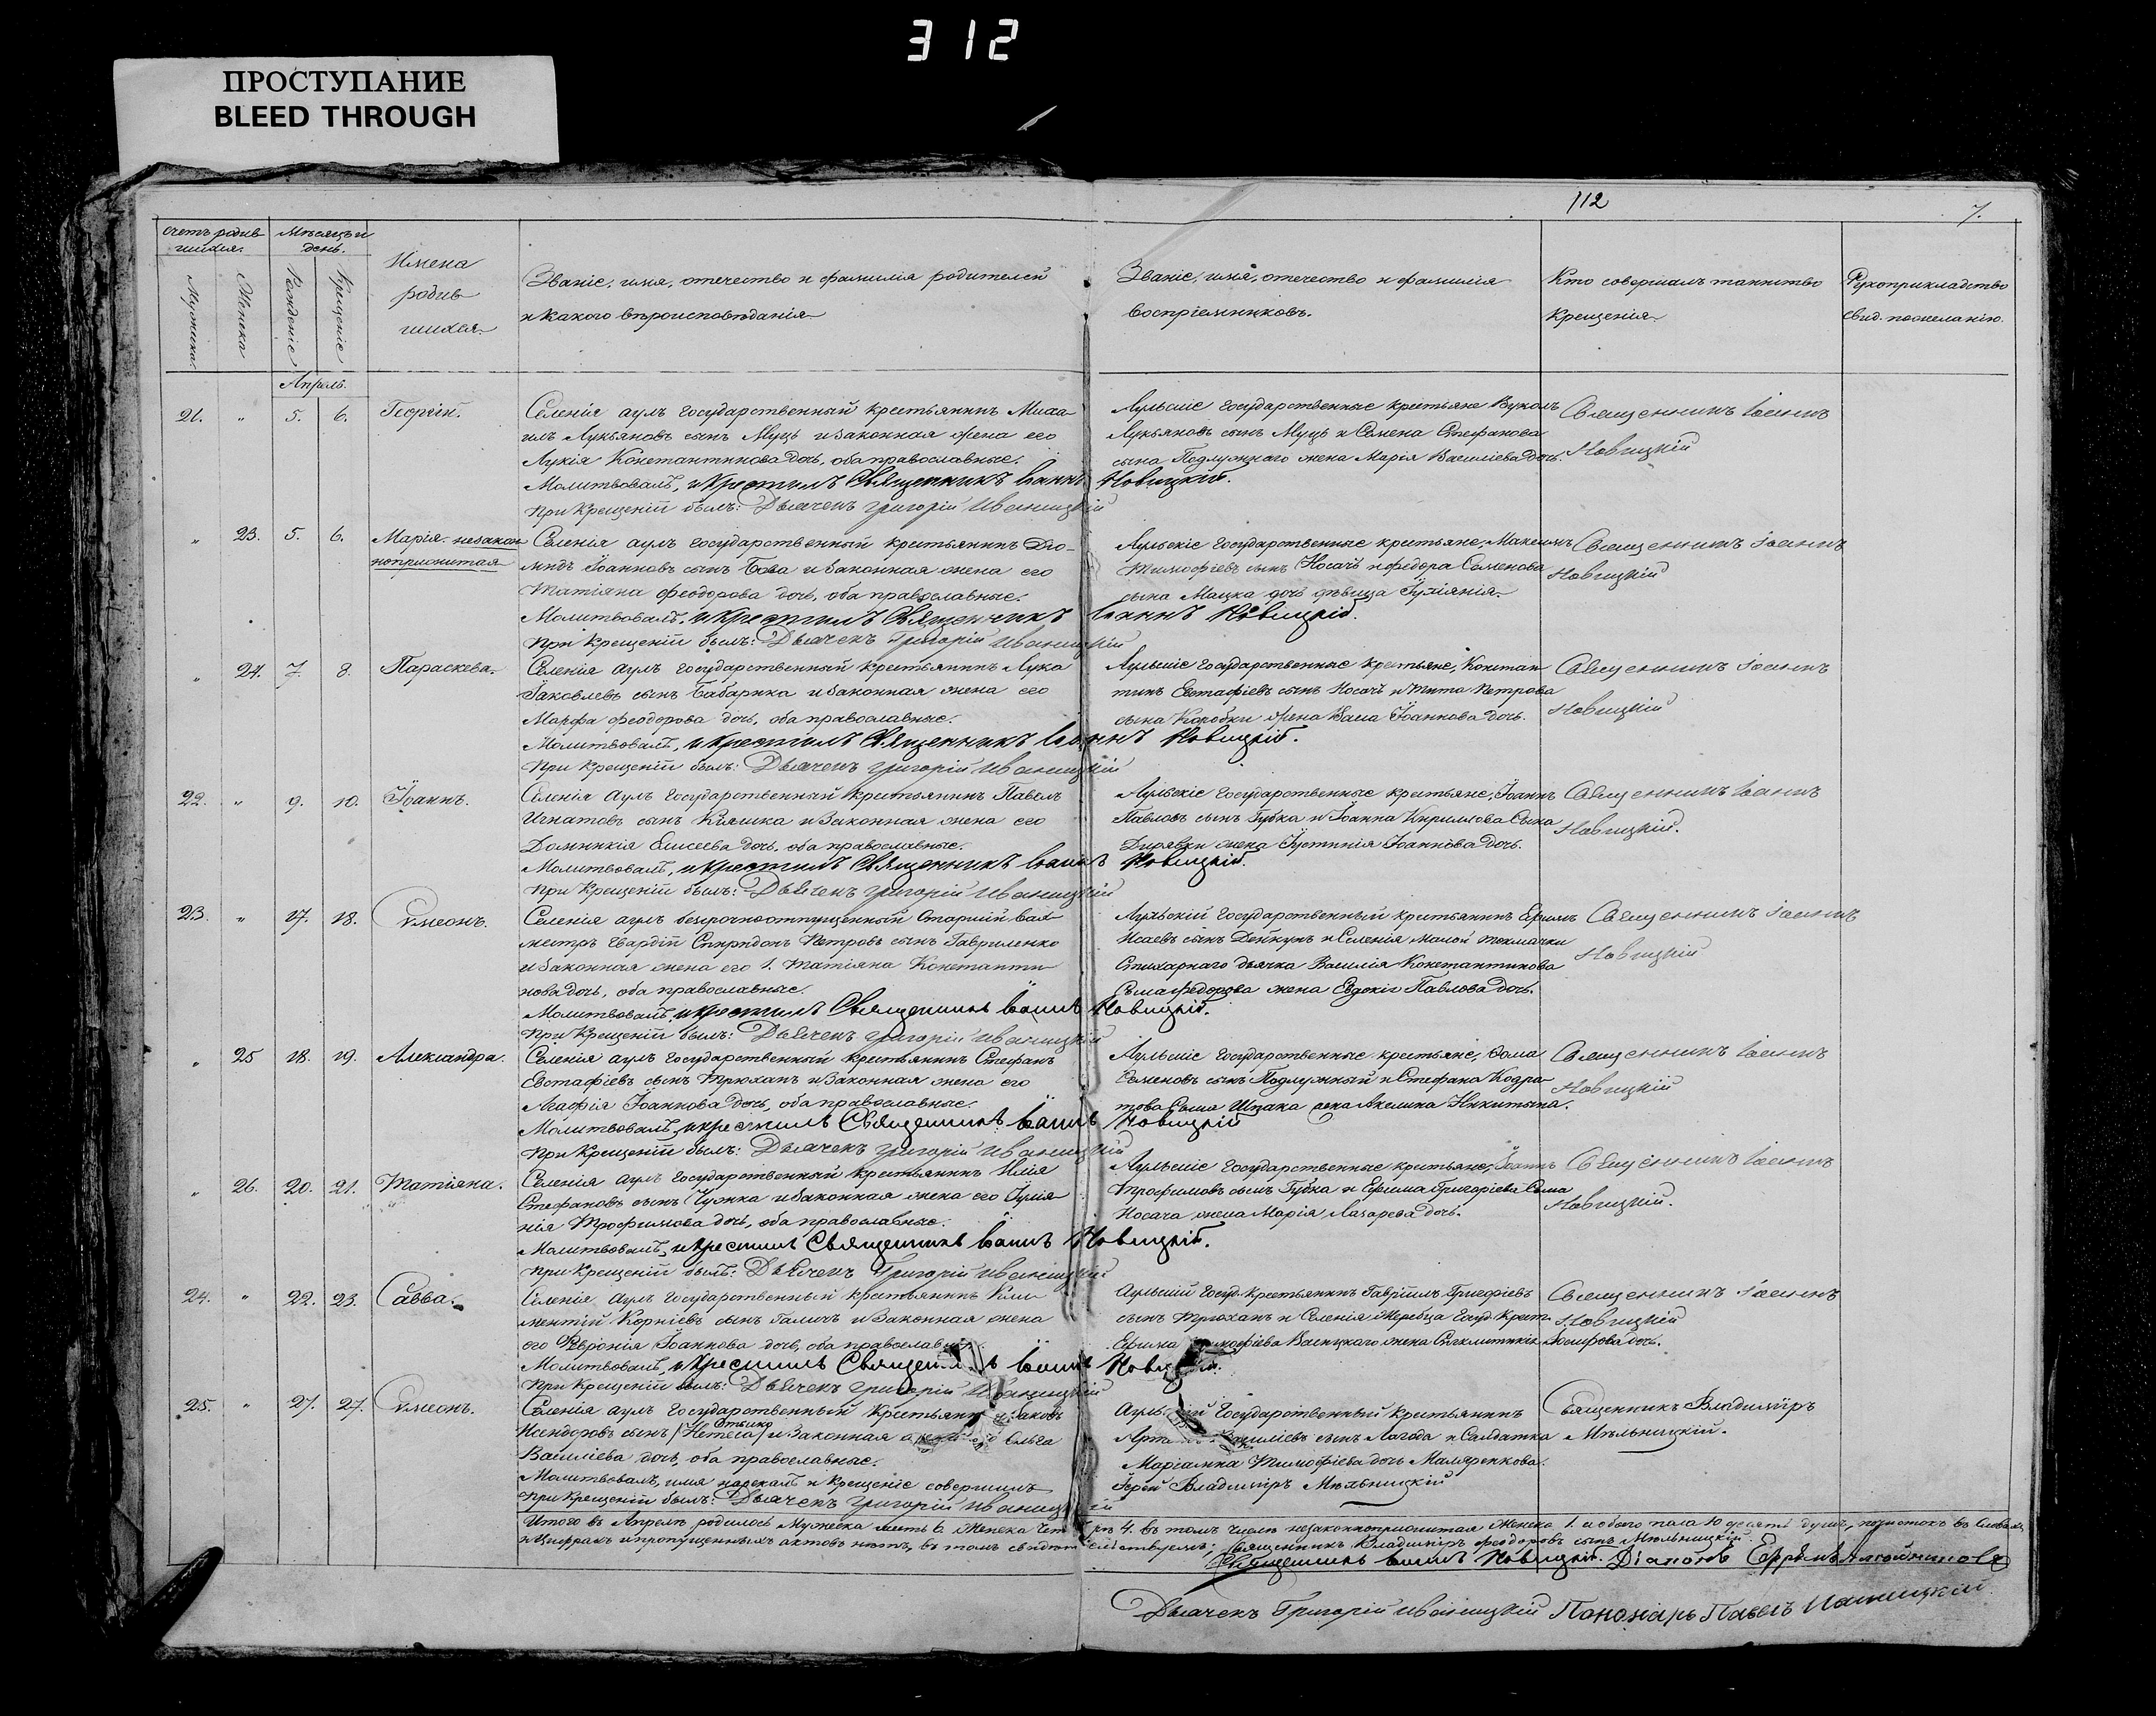 312
ПРОСТУПАНИЕ
BLEED THROUGH
112
7.
Счетъ родив
шихся.
Мѣсяцъ и
день.
Мужеска
Женска
Рожденіе
Крещеніе
Имена
родив
шихся
Званіе, имя, отечество и фамилія родителей
и какого вѣроисповѣданія
Званіе, имя, отечество и фамилія
воспріемниковъ.
Кто совершалъ таинство
крещенія
Рукоприкладство
свид. по желанію.
Апрель.
21. " 5. 6. Георгій.
Селенія аулъ государственный крестьянинъ Миха
илъ Лукьяновъ сынъ Муць и законная жена его
Лукія Константинова дочь, оба православные.
Молитвовалъ, и крестилъ Священникъ Іоаннъ Новицкій.
При крещеніи былъ: Дьячекъ Григорій Иваницкій
Аульскіе государственные крестьяне Вуколъ
Лукьяновъ сынъ Муць и Семена Стефанова
сына Подлужнаго жена Марія Василіева дочь.
Священникъ Іоаннъ
Новицкій
" 23. 5. 6. Марія незакон
ноприжитая
Селенія аулъ государственный крестьянинъ Дio-
мидъ Іоанновъ сынъ Бова и законная жена его
Татіяна Феодорова дочь, оба православные.
Молитвовалъ, и крестилъ Священникъ Іоаннъ Новицкій.
При крещеніи былъ: Дьячекъ Григорій Иваницкій
Аульскіе государственные крестьяне, Максимъ
Тимофіевъ сынъ Носачъ и Федора Семенова
сына Мацка дочь дѣвица Іуліянія.
Священникъ Іоаннъ
Новицкій
" 24. 7. 8. Параскева.
Селенія аулъ государственный крестьянинъ Лука
Іаковлевъ сынъ Бабарика и законная жена его
Марфа Феодорова дочь, оба православные.
Молитвовалъ, и крестилъ Священникъ Іоаннъ Новицкій.
При крещеніи былъ: Дьячекъ Григорій Иваницкій
Аульскіе государственные крестьяне, Констан
тинъ Евстафіевъ сынъ Носачъ и Тита Петрова
сына Коробки жена Васа Іоаннова дочь.
Священникъ Іоаннъ
Новицкій
22. " 9. 10. Іоаннъ.
Селенія аулъ государственный крестьянинъ Павелъ
Игнатовъ сынъ Кіяшка и законная жена его
Домникія Елисеева дочь, оба православные.
Молитвовалъ, и крестилъ Священникъ Іоаннъ Новицкій.
При крещеніи былъ: Дьячекъ Григорій Иваницкій
Аульскіе государственные крестьяне, Іоаннъ
Павловъ сынъ Губка и Іоанна Кирилова сына
Дирявки жена Іустинія Іоаннова дочь.
Священникъ Іоаннъ
Новицкій.
23. " 17. 18. Симеонъ.
Селенія аулъ безсрочноотпущенный старшій вах
мистръ гвардіи Спиридонъ Петровъ сынъ Гавриленко
и законная жена его 1. Татіяна Константи
нова дочь, оба православные.
Молитвовалъ, и крестилъ Священникъ Іоаннъ Новицкій.
При крещеніи былъ: Дьячекъ Григорій Иваницкій
Аульскій государственный крестьянинъ Ефимъ
Исаевъ сынъ Дейкунъ и Селенія малой токмачки
Стихарнаго дьячка Василія Константинова
Сына Федорова жена Евдокія Павлова дочь.
Священникъ Іоаннъ
Новицкій
" 25 18. 19. Александра.
Селенія аулъ государственный крестьянинъ Стефанъ
Евстафіевъ сынъ Трюханъ и законная жена его
Агафія Іоаннова дочь, оба православные.
Молитвовалъ, и крестилъ Священникъ Іоаннъ Новицкій
При крещеніи былъ: Дьячекъ Григорій Иваницкій
Аульскіе государственные крестьяне, Фома
Семеновъ сынъ Подлужный и Стефана Кодра
това Сына Шпака жена Акелина Никитина.
Священникъ Іоаннъ
Новицкій
" 26. 20. 21. Татіяна.
Селенія аулъ государственный крестьянинъ Илія
Стефановъ сынъ Чужка и законная жена его Іулія
нія Трофимова дочь, оба православные.
Молитвовалъ, и крестилъ Священникъ Іоаннъ Новицкій.
При крещеніи былъ: Дьячекъ Григорій Иваницкій
Аульскіе государственные крестьяне, Іоаннъ
Трофимовъ сынъ Губка и Ефима Григоріева Сына
Носача жена Марія Лазарева дочь.
Священникъ Іоаннъ
Новицкій.
24. " 22. 23. Савва.
Селенія аулъ государственный крестьянинъ Кли
ментій Корніевъ сынъ Галичъ и законная жена
его Февронія Іоаннова дочь, оба православные.
Молитвовалъ, и крестилъ Священникъ Іоаннъ Новицкій.
При крещеніи былъ: Дьячекъ Григорій Иваницкій
Аульскій Госуд. крестьянинъ Гавріилъ Григоріевъ
сынъ Трюханъ и Селенія Жеребца Госуд. Крест.
Ефима Тимофіева Васицкаго жена Синклитикія Іосифова дочь.
Священникъ Іоаннъ
Новицкій
25. " 27. 27. Симеонъ.
Селенія аулъ государственный крестьянинъ Іаковъ
Исидоровъ сынъ /Нетеса/ и законная жена его Ольга
Василіева дочь, оба православные.
Молитвовалъ, имя нарекалъ и крещеніе совершилъ Іерей Владиміръ Мѣльницкій
При крещеніи былъ: Дьячекъ Григорій Иваницкій
Аульскій государственный крестьянинъ
Василіевъ сынъ Лагода и Салдатка
Маріанна Тимофіева дочь Маляренкова.
Священникъ Владиміръ
Мѣльницкій.
Итого въ Апрелѣ родилось Мужеска шесть 6. Женска четыре 4. въ томъ числѣ незаконноприжитая Женска 1. и обоего пола 10 десять душъ, подчистокъ въ Словахъ
и Цифрахъ и пропущенныхъ актовъ нѣтъ, въ томъ свидѣтельствуемъ: Священникъ Владиміръ Феодоровъ сынъ Мѣльницкій.
Священникъ Іоаннъ Новицкій. Діаконъ Ефрѣмъ
Дьячекъ Григорій Иваницкій Пономарь Павелъ